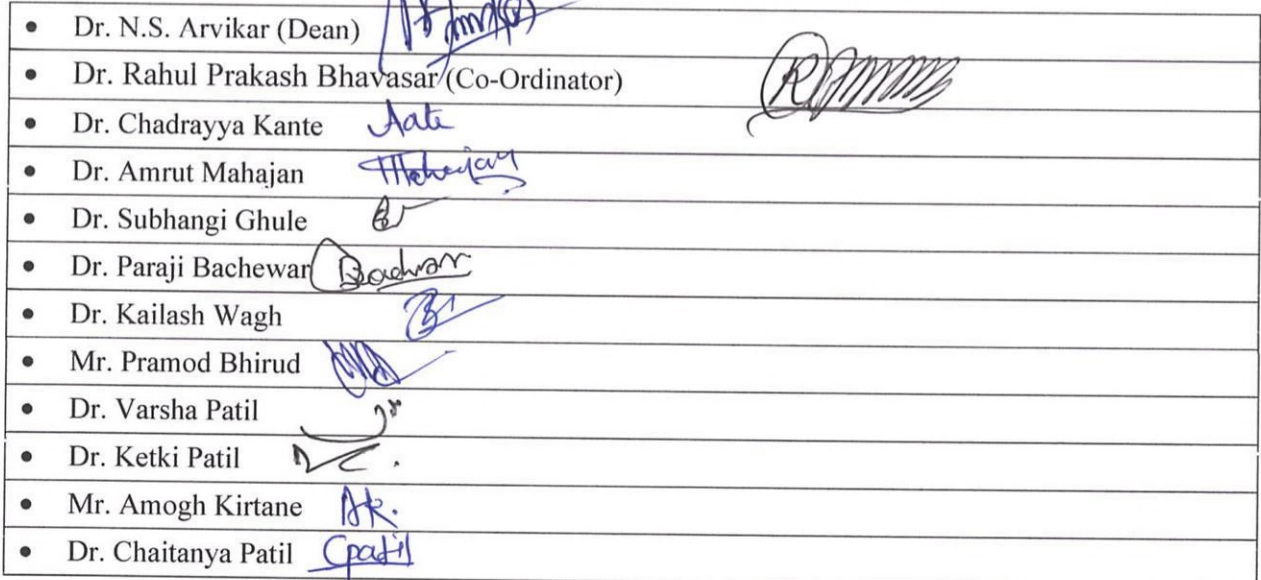 • Dr. N.S. Arvikar (Dean)
• Dr. Rahul Prakash Bhavasar (Co-Ordinator)
• Dr. Chadrayya Kante
• Dr. Amrut Mahajan
• Dr. Subhangi Ghule
• Dr. Paraji Bachewar
• Dr. Kailash Wagh
• Mr. Pramod Bhirud
• Dr. Varsha Patil
• Dr. Ketki Patil
• Mr. Amogh Kirtane AK.
• Dr. Chaitanya Patil Cpatil